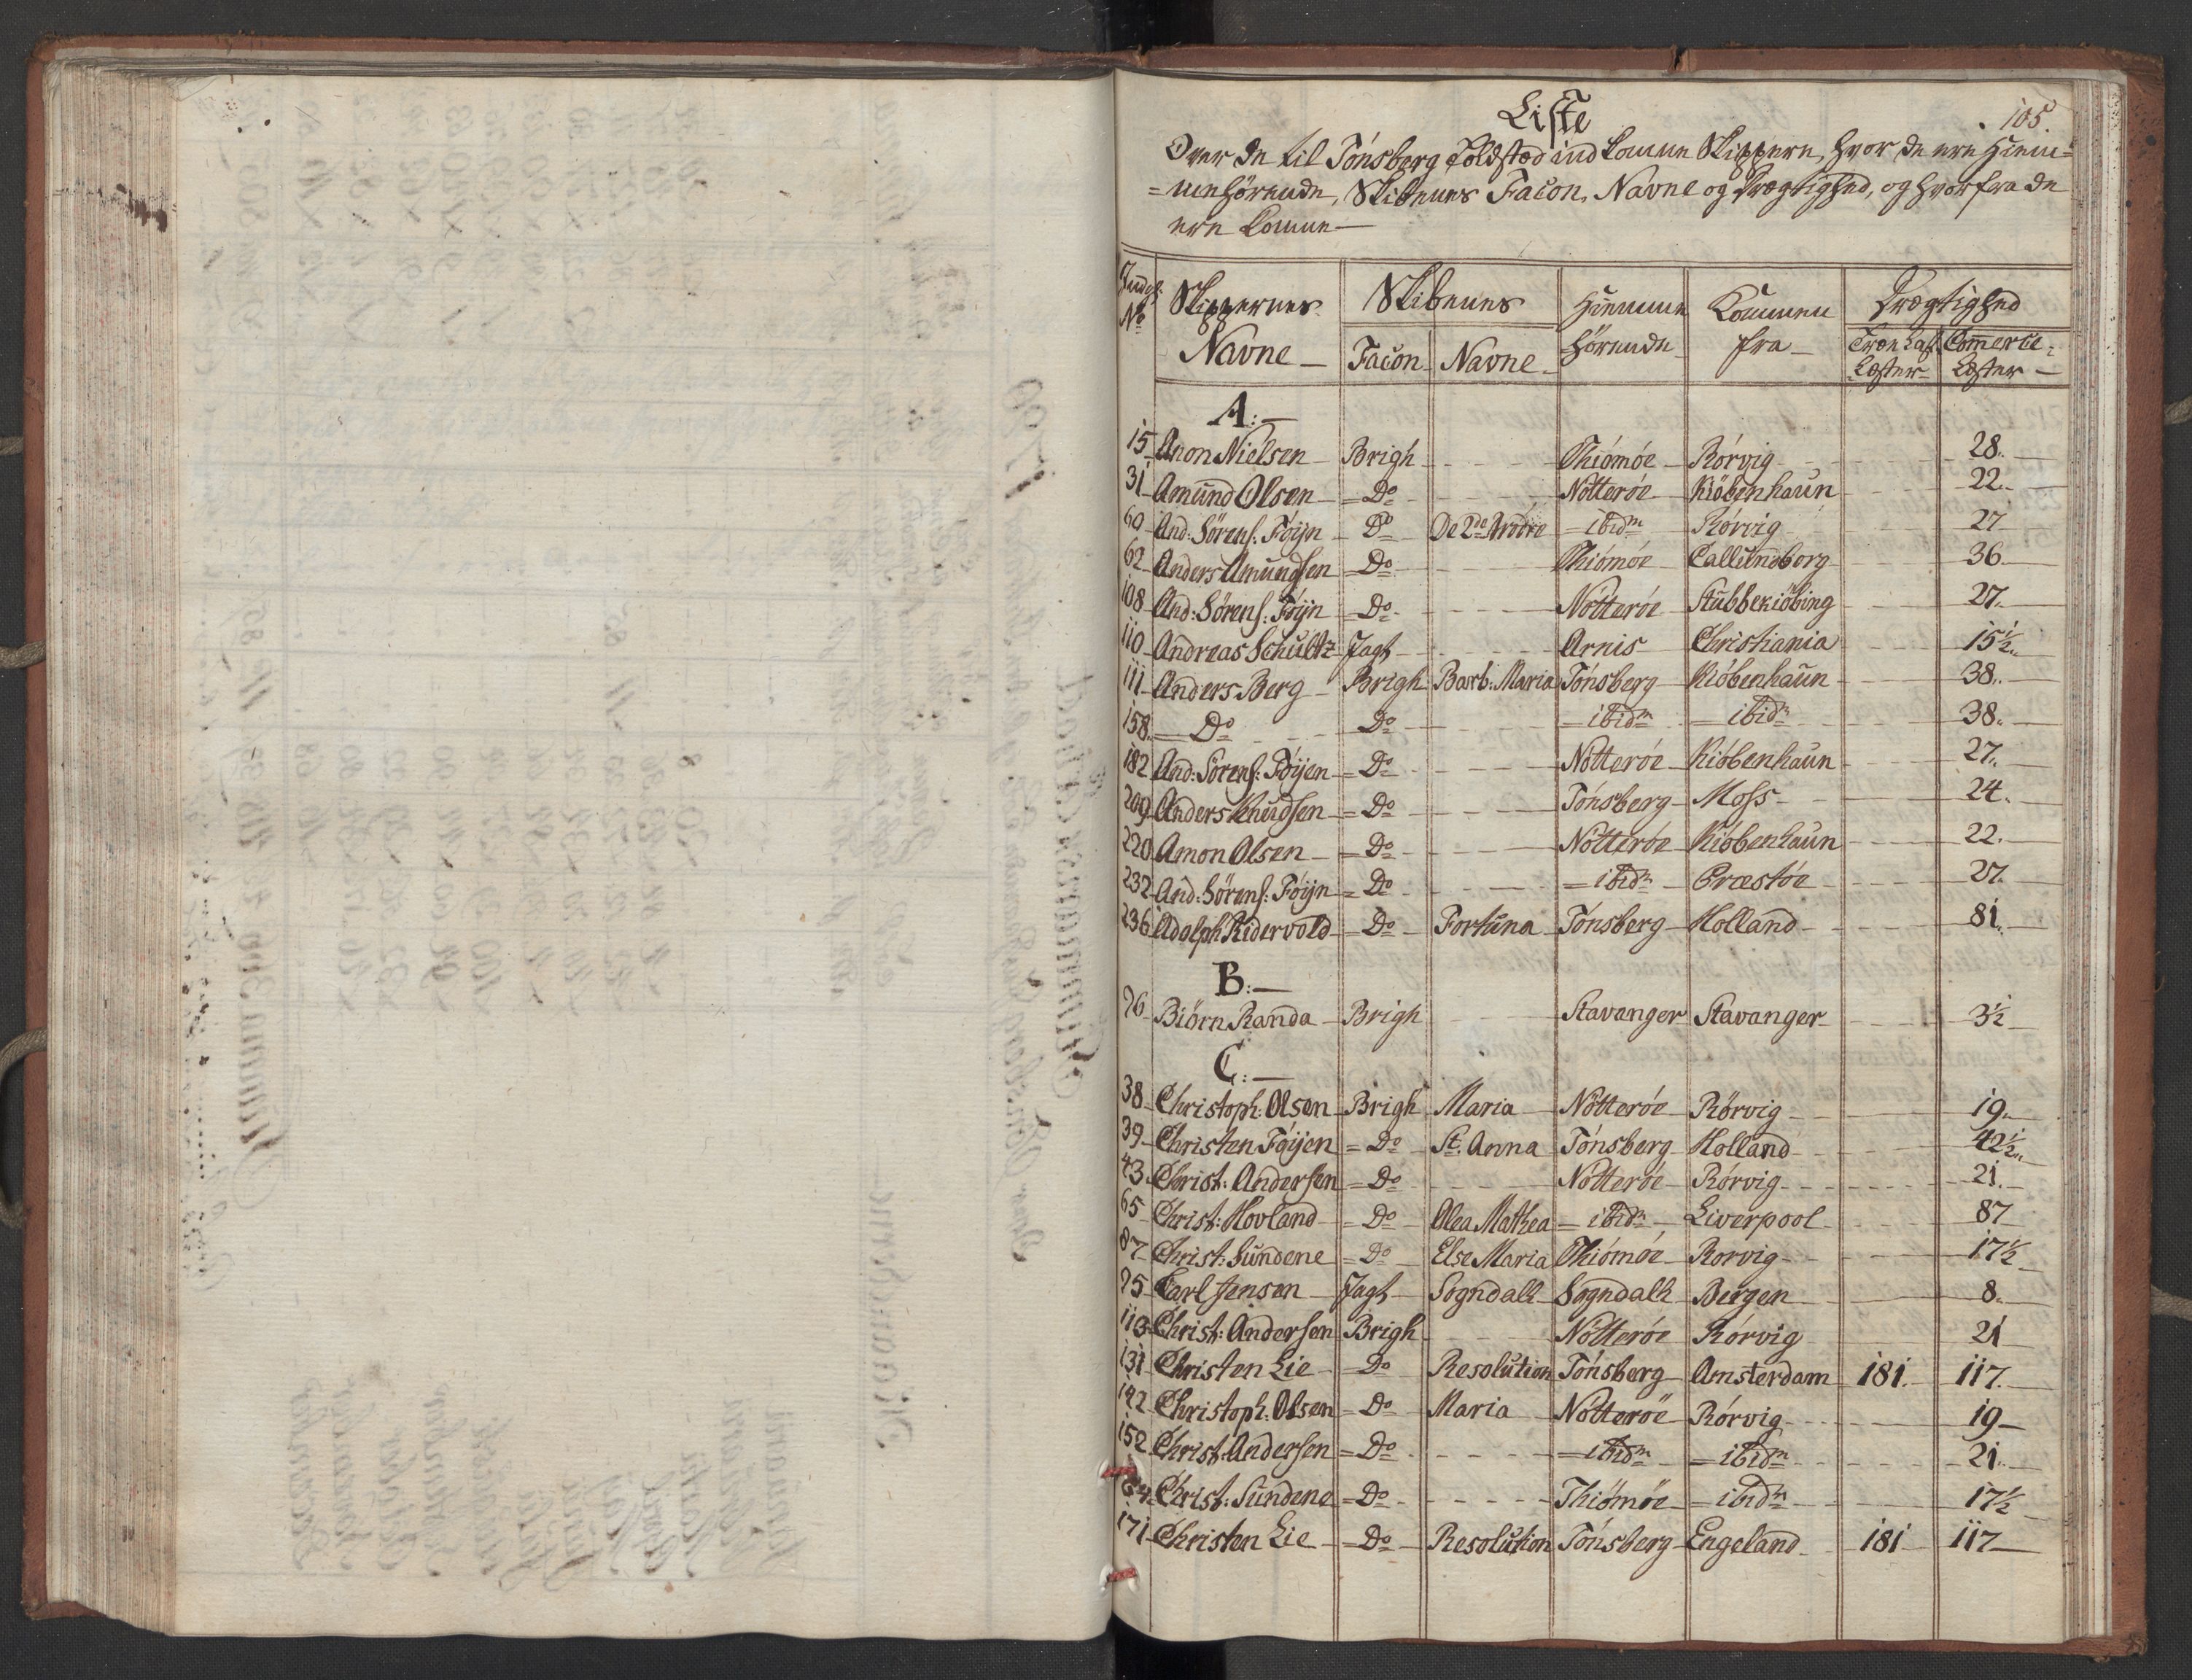 105.
Liste
Over de til Tönsberg Toldsted indkomne Skippere, hvor de ere Hiem=
=mehörende, Skibenes Facon, Navne og Drægtighed, og hvorfra de
ere komne—
Indg. No Skippernes Navne — Skibenes Facon Navne Hiemme hörende Kommen fra — Drægtighed Træn Last Læster Commerce Læster —
A:—
15 Anon Nielsen Brigh Thiömöe Rörvig 28.
31 Amund Olsen Do Nötteröe Kiöbenhaun 22.
And: Sörens: Föijn Do De 2de Brödre ibidm Rörvig 27
62 Anders Amundsen Do Thiömöe Callundborg 36
108 And: Sörens: Föijn Do Nötteröe Stubbekiöbing 27.
110 Andreas Schultz Jagt Arnis Christiania 15½
111 Anders Berg Brigh Barb: Maria Tönsberg Kiöbenhaun 38.
158 Do Do ibidm ibidm 38.
182 And: Sörens: Föijen Do Nötteröe Kiöbenhaun 27.
209 Anders Knudsen Do Tönsberg Moss 24.
220 Amon Olsen Do Nötteröe Kiöbenhaun 22.
232 And: Sörens: Föijn Do ibidm Præstöe 27.
236 Adolph Ridervold Do Fortuna Tönsberg Holland 81.
B:—
76 Biörn Randa Brigh Stavanger Stavanger 3½
C:—
38 Christoph: Olsen Brigh Maria Nötteröe Rörvig 19.
39 Christen Föijen Do St. Anna Tönsberg Holland 42½
43 Christ: Andersen Do Nötteröe Rörvig 21.
65 Christ: Hovland Do Olea Mathea ibidm Liverpool 87
87 Christ: Sundene Do Else Maria Thiömöe Rörvig 17½
95 Carl Jensen Jagt Sogndall Sogndall Bergen 8.
113 Christ: Andersen Brigh Nötteröe Rörvig 21
131 Christen Lie Do Resolution Tönsberg Amsterdam 181. 117.
142 Christoph: Olsen Do Maria Nötteröe Rörvig 19
152 Christ: Andersen Do ibidm ibidm 21.
Christ: Sundene Do Thiömöe ibidm 17½
171 Christen Lie Do Resolution Tönsberg Engeland 181 117